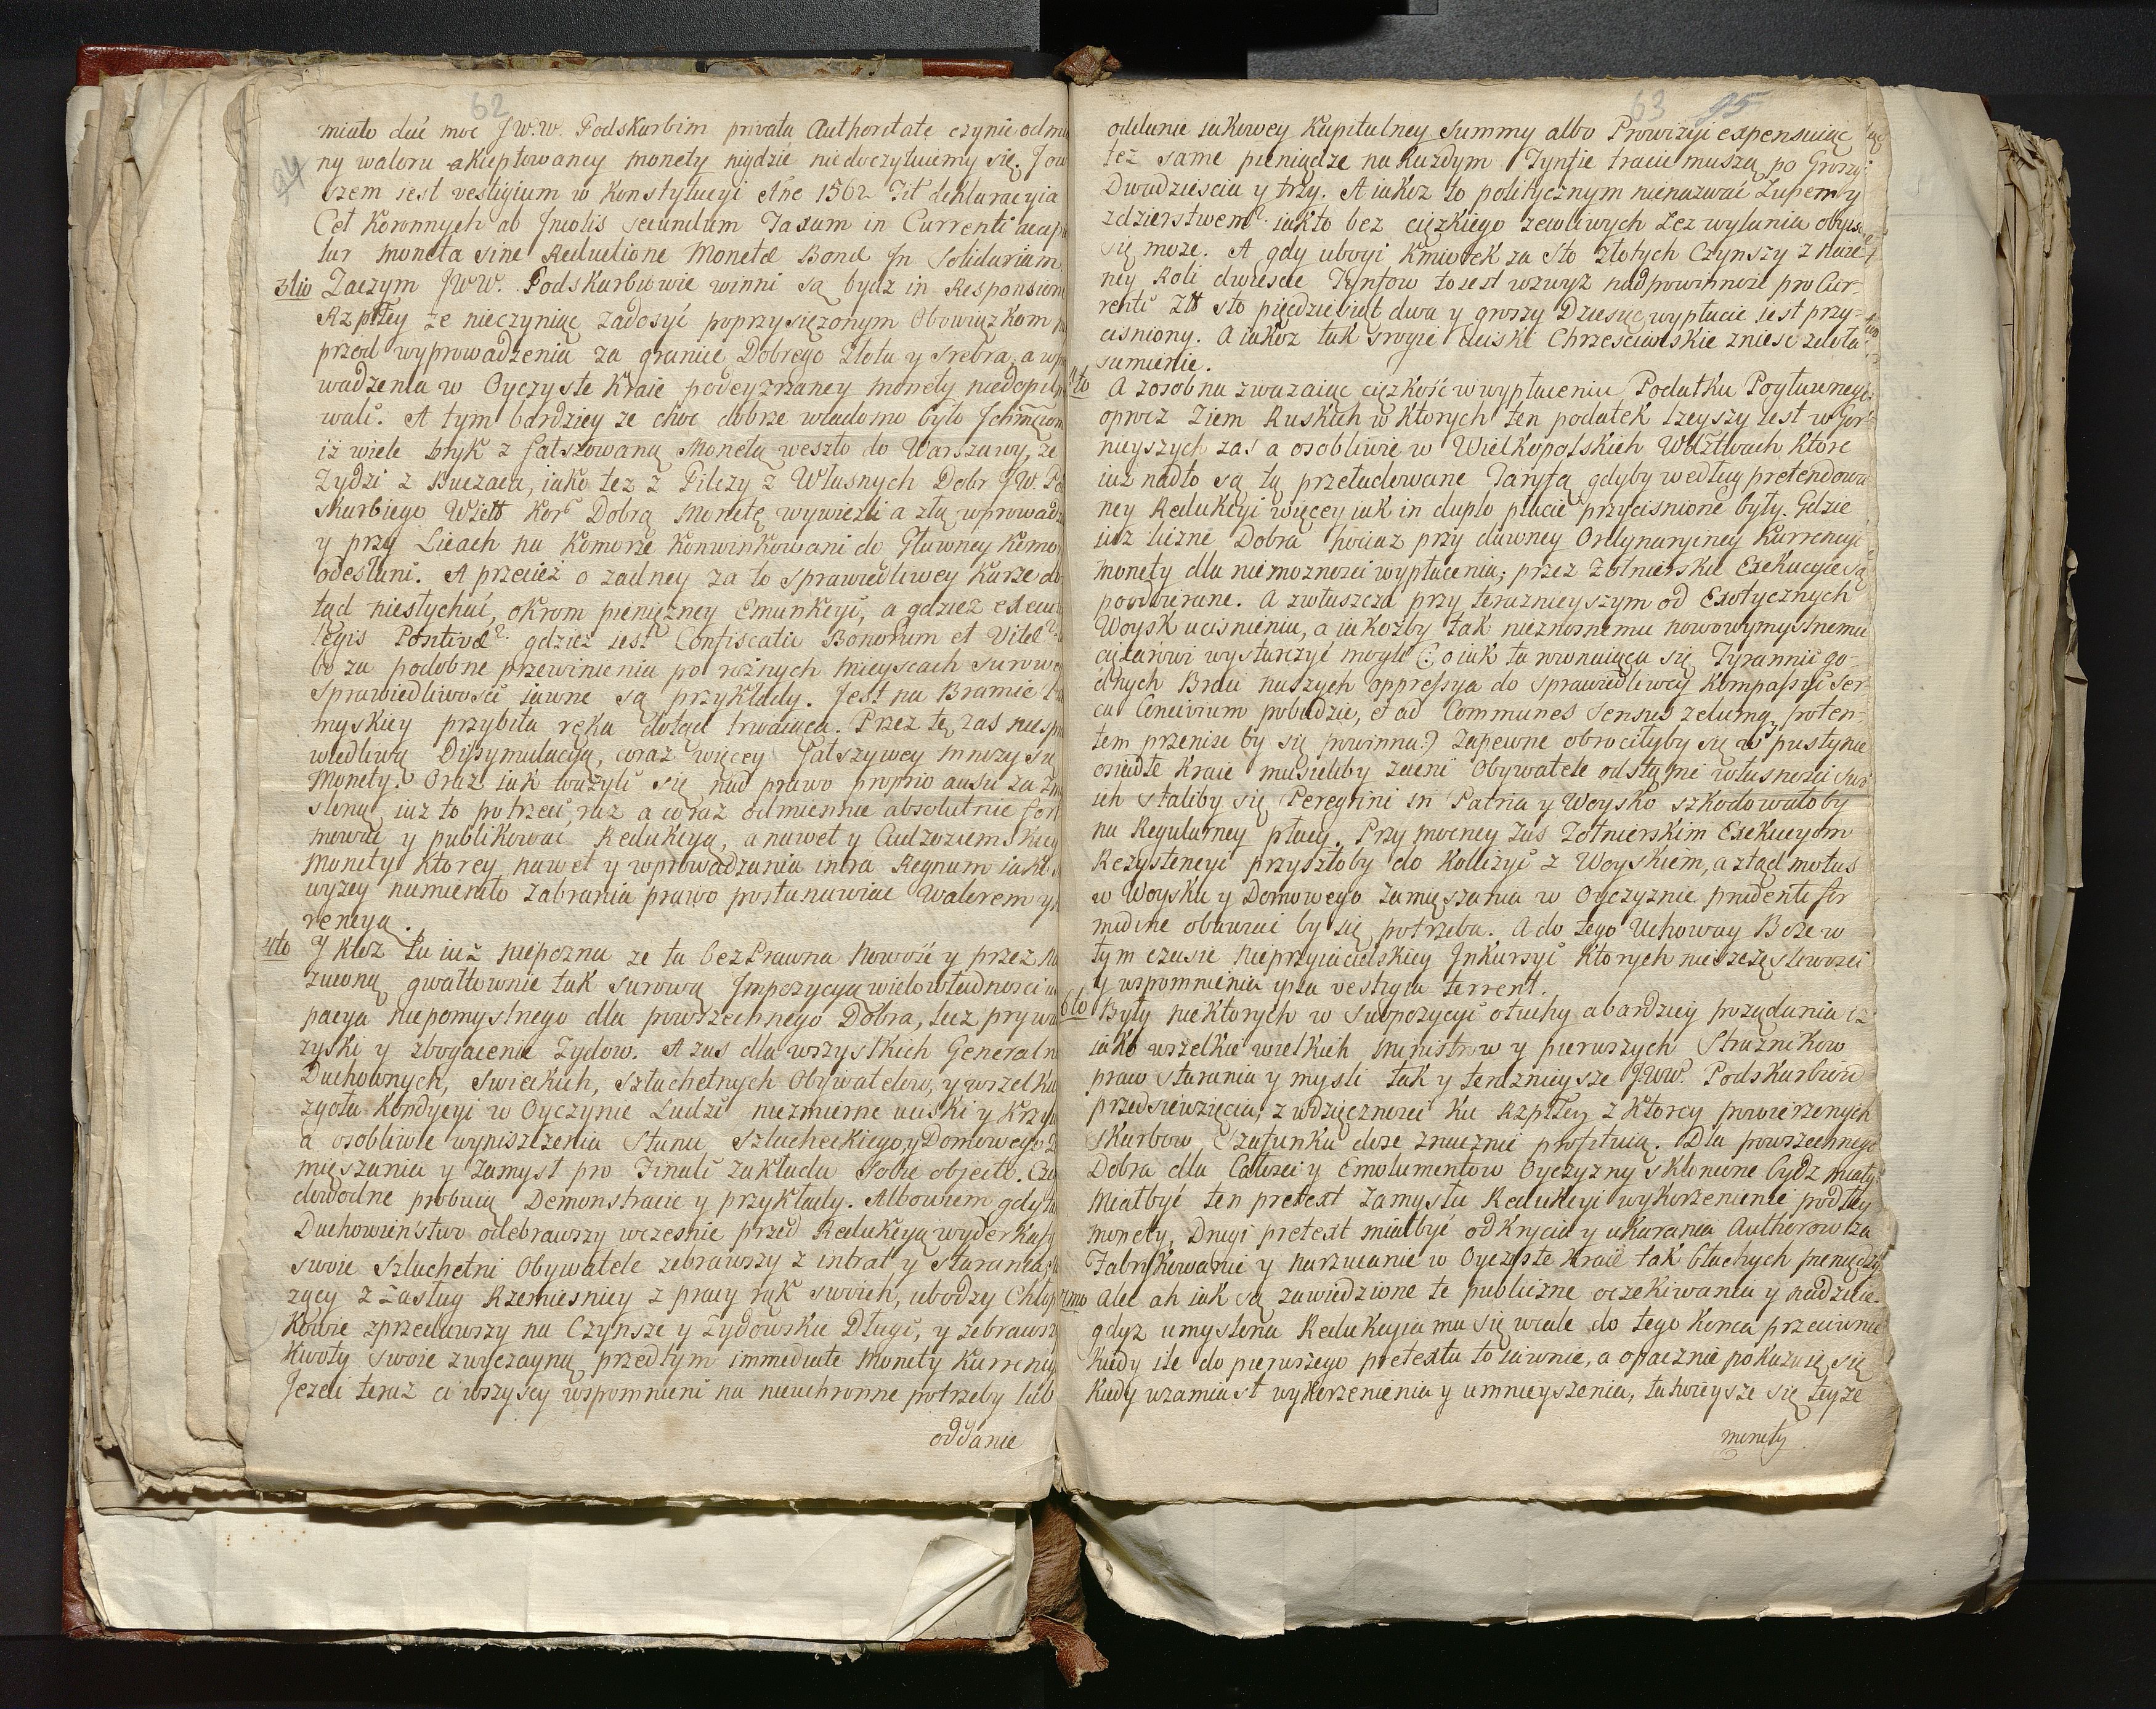 62
miało dać moc JW.W. Podskarbim privata Authoritate czynic odmia
ny waloru akceptowaney monety nigdzie niedoczytuiemy się. Jow
94
szem iest vestigium w Konstytucyi Ane 1562 Tit deklaracyia
Ceł Koronnych ab Incolis secundum Taxam in Currenti accipia
tur moneta sine Reductione Moneta Bona In Solidarium
3tio Zaczym JWW. Podskarbiowie winni są bydz in Responsion
Rzpltey ze nieczyniąc zadosyć poprzysięzonym Obowiązkom
przed wyprowadzenia za granice Dobrego złota y srebra, a wpro
wadzenia w Oyczyste Kraie podeyzrzaney monety niedopilno
wali. A tym bardziey ze choc dobrze wiadomo było Ichmciom
iż wiele bryk z fałszowaną Monetą weszło do Warszawy, ze
Zydzi z Buczacza, iako tez z Pilczy z Własnych Dobr JW. Po
skarbiego Wielł Kor Dobrą Monetę wywiezli a złą wprowadzi
y przy Licach na Komorze Konwinkowani do Głowney Komo
odesłani. A przecież o zadney za to sprawiedliwey Karze do
tąd niesłychać, okrom pieniężney Emunkcyi, a gdzież
legis Positivæ? gdzież iest Confiscatio Bonorum et Vitæ?
bo za podobne przewinienia po rożnych mieyscach surowe
Sprawiedliwości iawne są przykłady. Jest na Bramie
myskiey przybita ręka dotąd trwaiąca. Przez tę zas niespra
wiedliwą Dissymulacyą, coraz więcey Fałszywey mnozy się
Monety. Oraz iak ważyli się nad prawo proprio ausu za
sloną iuz to potrzeci raz a coraz odmiennie absolutnie for
mowac y publikować Redukcyą, a nawet y Cudzoziemskiey
Monety Ktorey nawet y wprowadzania intra Regnum iako
wyzey namieniło zabrania prawo postanawiac Walorem y
rencyą.
4to Y ktoz tu iuż niepozna ze ta bezPrawna nowość y przez na
rzuconą gwałtownie tak surową Impozycyą wielowładności
pacya niepomyslnego dla powszechnego Dobra, lecz prywa
zyski y zbogacenie Zydow. A zas dla wszystkich Generaln
Duchownych, swieckich, szlachetnych Obywatelow, y wszelka
zgoła Kondycyi w Oyczynie Ludzi niezmierne uciski y Krzyw
a osobliwie wyniszczenia stanu Szlacheckiego, y Domowego
mięszania y zamysł pro Finali zakłada Sobie objecto. Czy
dowodne probuią Demonstracie y przykłady. Albowiem gdy
Duchowieństwo odebrawszy wczesnie przed Redukcyą wyderkaffy
swoie Szlachetni Obywatele zebrawszy z intrat y starania
zący z zasług Rzemiesnicy z pracy rąk swoich, ubodzy Chłop
kowie zprzedawszy na Czynsze y Zydowskie Długi, y zebrawsz
Kwoty swoie zwyczayną przedtym immediate Monety Kurrency
Jezeli teraz ci wszyscy wspomnieni na nieuchronne potrzeby lub
oddanie
63 95
oddanie iakowey Kapitalney Summy albo Prowizyi expensuiąc
też same pieniądze na Kazdym Tynfie tracic muszą po Groszy
Dwadziescia y trzy. A iakoz to politycznym nienazwać Łupem y
zdzierstwem? iakto bez cięzkiego zewliwych Łez wylania obyisc
się moze. A gdy ubogi Kmiotek za Sto Złotych Czynszy z
ney Roli dwiescie Tynfow to iest wzwyż nadpowinność pro Cur
renti Złł sto pięcdziesiąt dwa y groszy Dziesięć wypłacic iest przy=
cisniony. A iakoz tak srogie uciski Chrzesciańskie zniesc zdoła
sumienie.
5to A zosobna zwazaiąc cięzkość w wypłaceniu Podatku Pogłownego
oprocz Ziem Ruskich w ktorych ten podatek lzeyszy iest w Gor
nieyszych zas a osobliwie w Wielkopolskich Wdztwach, które
iuz nadto są tą przeładowane Taryfą, gdyby według pretendowa
ney Redukcyi więcey iak in duplo płacić przycisnione były. Gdzie
iuz liczne Dobra chociaz przy dawney Ordynaryiney Kurrencyi
monety dla niemoznosci wypłacenia; przez Zołnierskie Exekucyie są
powwierane. A zwłaszcza przy teraznieyszym od Exotycznych
Woysk ucisnieniu, a iakożby tak nieznosnemu nowowymyslnemu
cięzarowi wystarczyć mogli (: o iak ta rownaiąca się Tyrannii go=
dnych Braci naszych oppressya do sprawiedliwey Kompassyi Ser=
ca Concivium pobudzic, et ad Communes sensus zelumq poten=
tem przenisc by się powinna:) Zapewne obrociłyby się w pustynie
osiadłe Kraie musieliby zacni Obywatele odstąpic własnosci swo
ich staliby się Peregrini in Patria y Woysko szkodowałoby
na Regularney płacy. Przy mocney zas Zołnierskim Exekucyom
Rezystencyi przyszłoby do Kollizyi z Woyskiem, a ztąd motus
w Woysku y Domowego zamięszania w Oyczyznie prudente for
midine obawiac by się potrzeba. A do tego Uchoway Boze w
tym czasie nieprzyiacielskiey Inkursyi Ktorych nieszczęsliwosci
y wspomnienia ipsa vestigia terrent.
6to Były niektorych w Suppozycyi otuchy a bardziey pożądania iz
iako wszelkie wielkich Ministrow y pierwszych Strażnikow
praw starania y mysli tak y teraznieysze JWW. Podskarbich
przedsiewzięcia, z wdzięcznosci ku Rzpltey z ktorey powierzonych
Skarbow Szafunku dosc znacznie profituią. Dla powszechnego
Dobra dla Całosci y Emolumentow Oyczyzny skłonione bydz miały
Miał być ten pretext zamysłu Redukcyi wykorzenienie podłey
monety, Drugi pretext miał być odkrycia y ukarania Authorow za
Fabrykowanie y narzucanie w Oyczyste Kraie tak błachych pieniędzy
7mo Alec ah iak są zawiedzione te publiczne oczekiwania y nadzieie
gdyz umyslona Redukcyia ma się wcale do tego Konca przeciwnie
Kiedy ile do pierwszego pretextu to iawnie, a opacznie pokazuie się
Kiedy wzamiast wykorzenienia y umnieyszenia, łatwieysze się teyze
monety